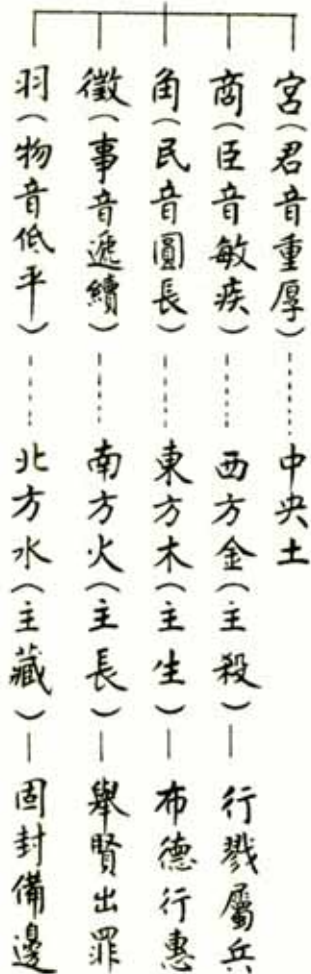 宮(君音重厚)……中央土
商(臣音敏疾)……西方金(主殺)—行戮屬兵、
角(民音圓長)……東方木(主生)—布德行惠
徵(事音遞續)……南方火(主長)—舉賢出罪
羽(物音低平)……北方水(主藏)—固封備邊